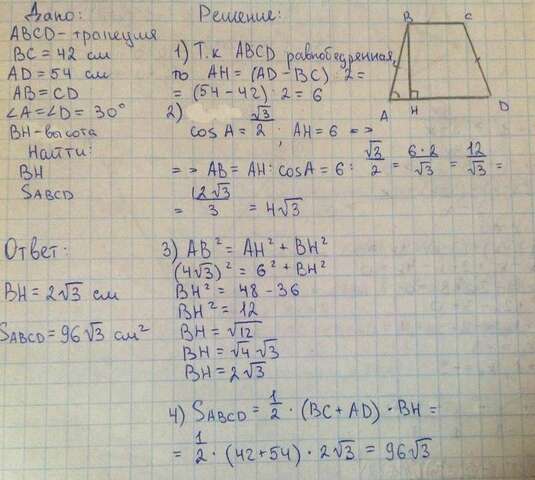 Дано:
ABCD - трапеция
BC = 42 см
AD = 54 см
AB = CD
∠A = ∠D = 30°
BH - высота
Найти:
BH
SABCD
Ответ:
BH = 2√3 см
SABCD = 96√3 см²
Решение:
1) Т.к ABCD равнобедренная,
то AH = (AD - BC) : 2 =
= (54 - 42) : 2 = 6
2) cos A = √3/2 ; AH = 6 =>
=> AB = AH : cos A = 6 : √3/2 = 6·2/√3 = 12/√3 =
= 12√3/3 = 4√3
3) AB² = AH² + BH²
(4√3)² = 6² + BH²
BH² = 48 - 36
BH² = 12
BH = √12
BH = √4 √3
BH = 2√3
4) SABCD = 1/2 · (BC + AD) · BH =
= 1/2 · (42 + 54) · 2√3 = 96√3
B
C
A
H
D